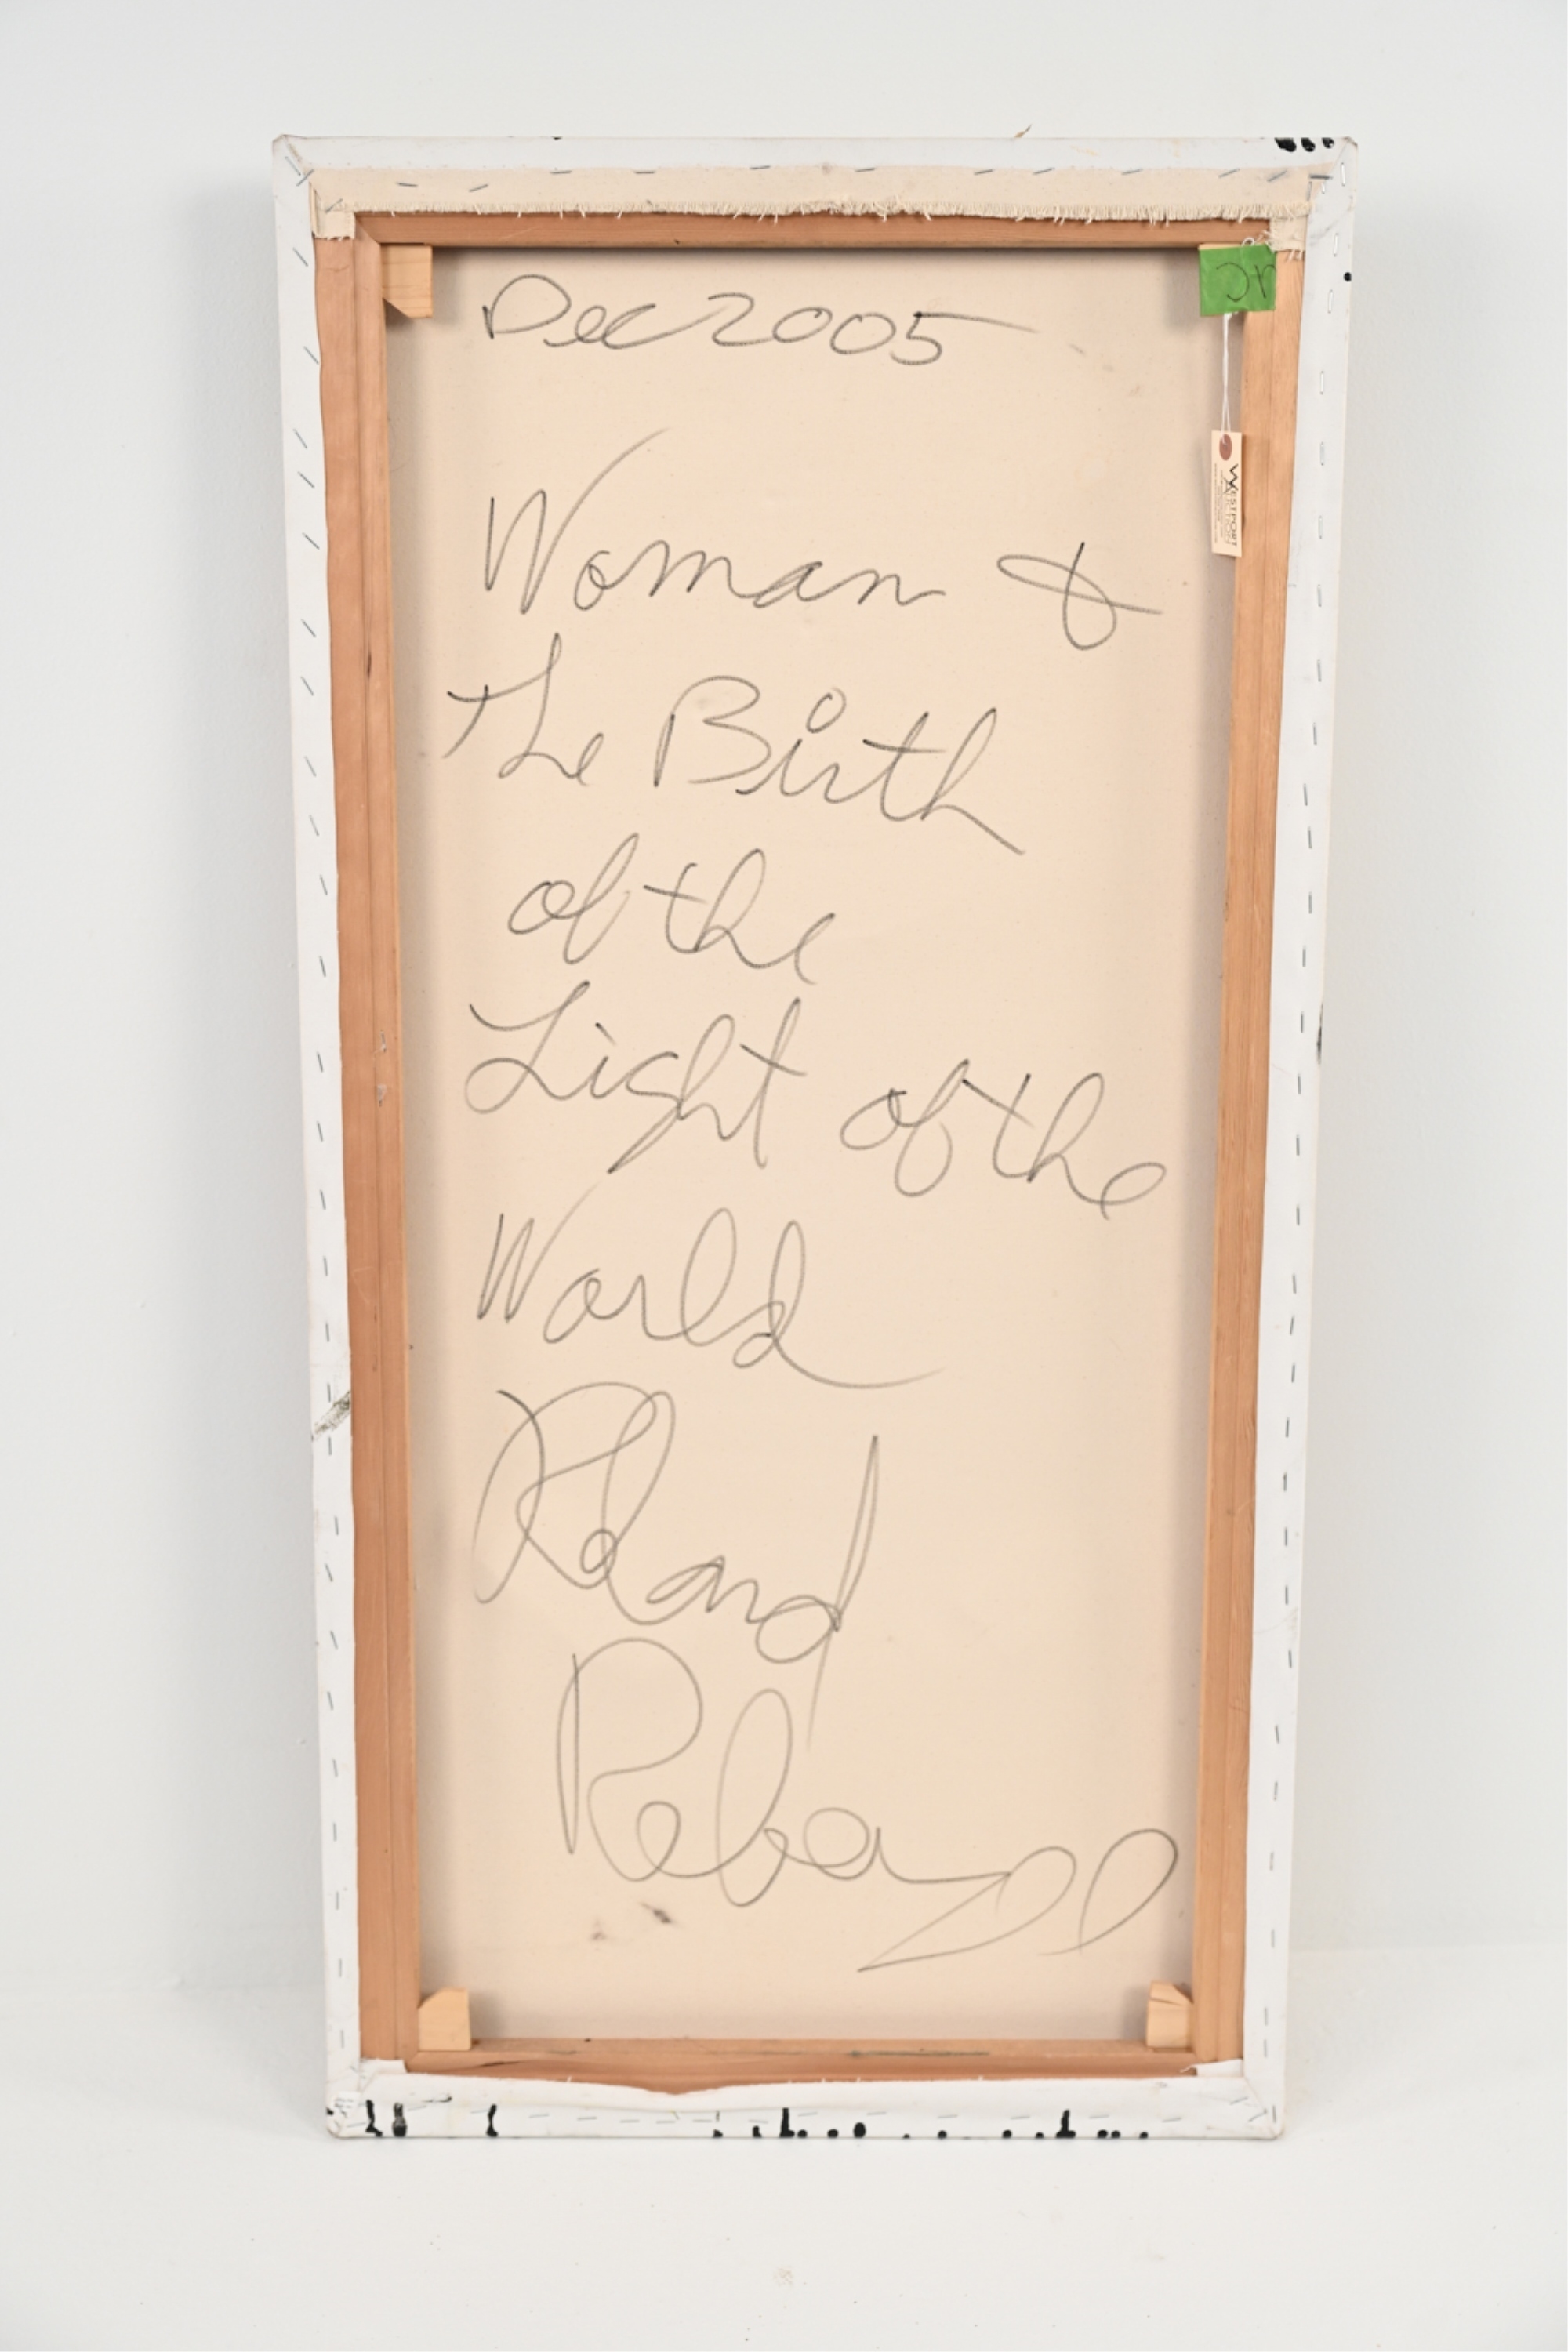 Dec 2005
Woman &
the Birth
of the
Light of the
World
Roland
WESTPORT
AUCTION